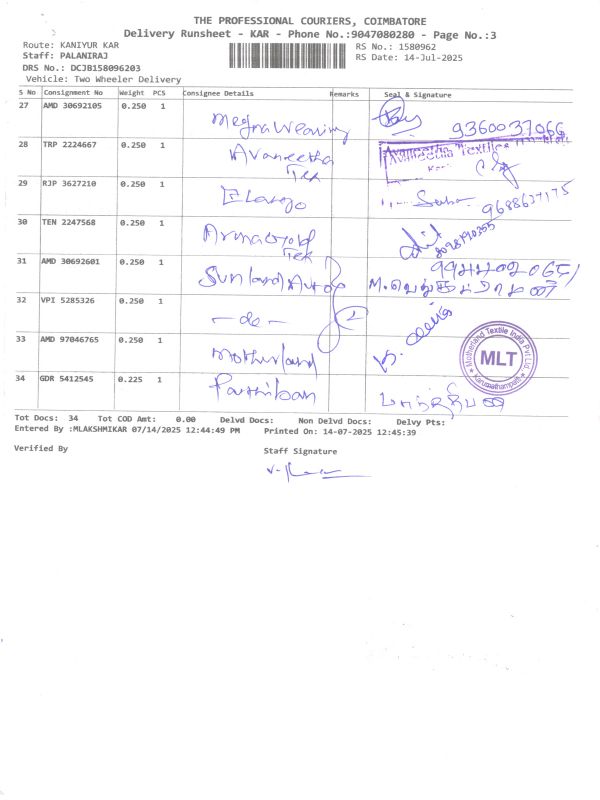 THE PROFESSIONAL COURIERS, COIMBATORE
Delivery Runsheet - KAR - Phone No.:9047080280 - Page No.:3
Route: KANIYUR KAR
RS No.: 1580962
Staff: PALANIRAJ
RS Date: 14-Jul-2025
DRS No.: DCJB158096203
Vehicle: Two Wheeler Delivery
S No Consignment No Weight PCS Consignee Details Remarks Seal & Signature
27 AMD 30692105 0.250 1 Megna Weaving 9360037066
28 TRP 2224667 0.250 1 Avaneetha Tex Avaneetha Textiles
29 RJP 3627210 0.250 1 Elango 9688637175
30 TEN 2247568 0.250 1 Tex 8098190355
31 AMD 30692601 0.250 1 Sunland Auto
32 VPI 5285326 0.250 1 - do -
33 AMD 97046765 0.250 1 Motherland Motherland Textile India Pvt Ltd. MLT Karumathampatti
34 GDR 5412545 0.225 1 Parthiban பார்த்திபன்
Tot Docs: 34 Tot COD Amt: 0.00 Delvd Docs: Non Delvd Docs: Delvy Pts:
Entered By :MLAKSHMIKAR 07/14/2025 12:44:49 PM Printed On: 14-07-2025 12:45:39
Verified By Staff Signature